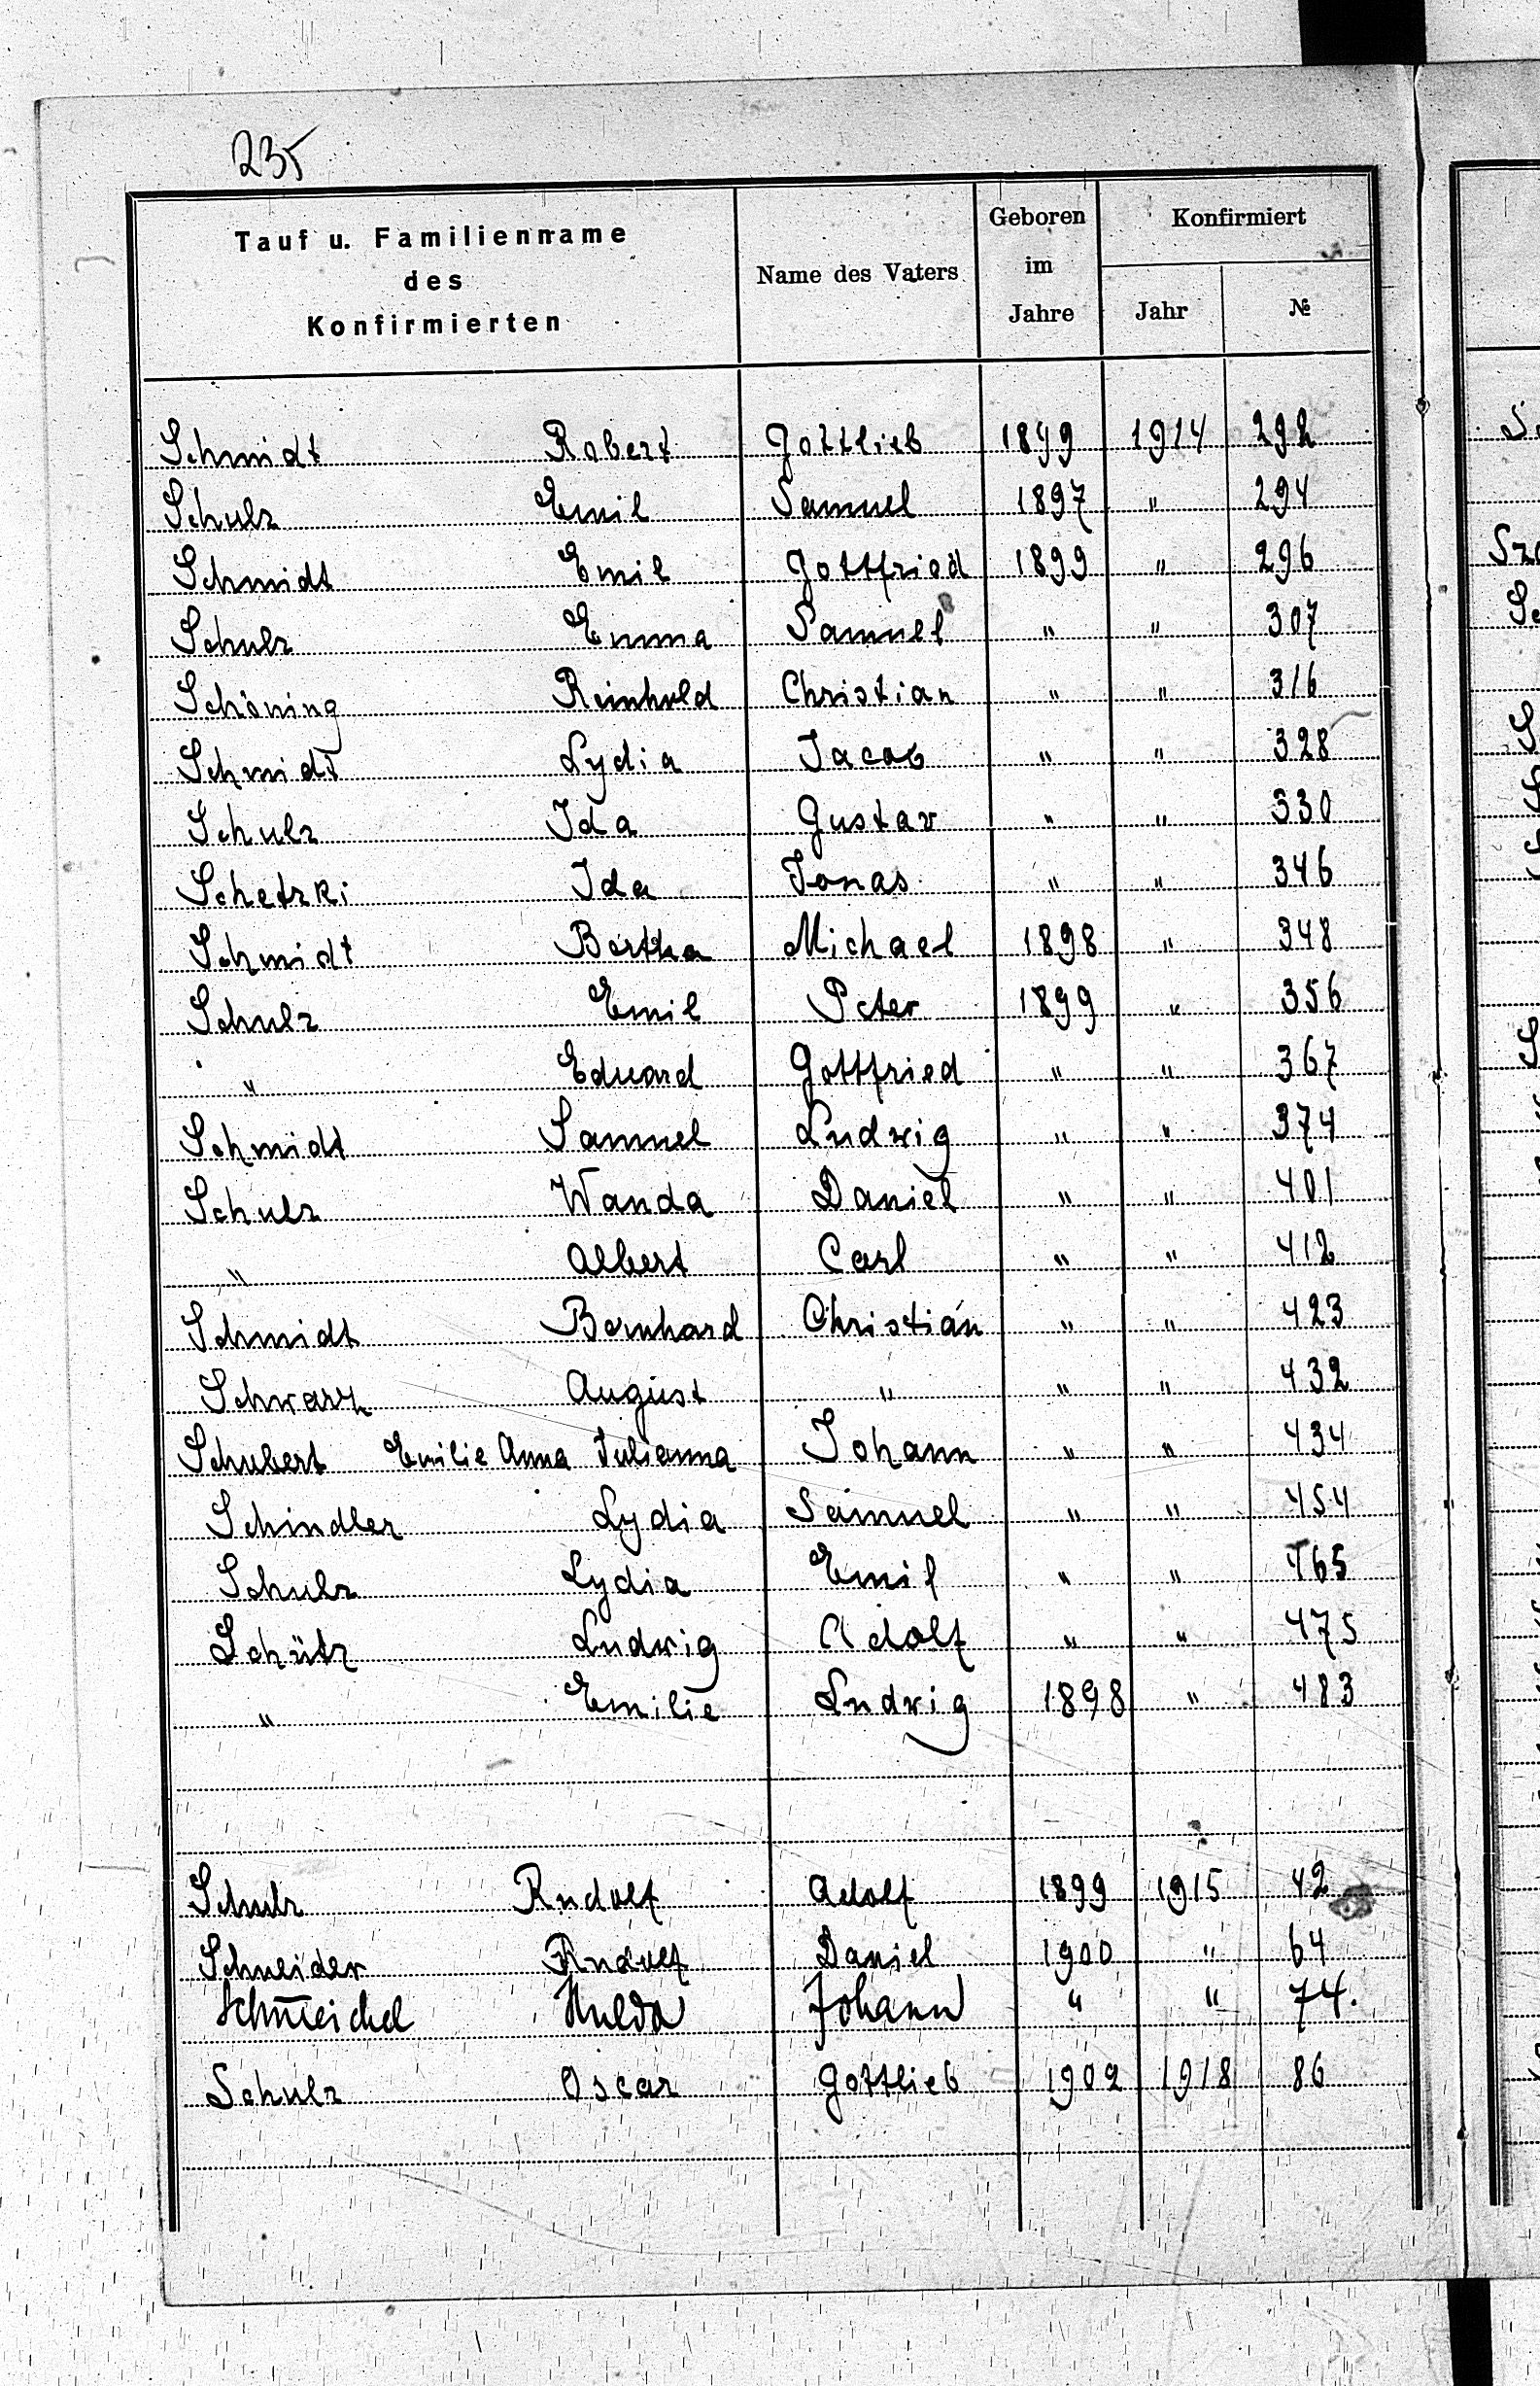 235
Tauf u. Familienname des Konfirmierten | Name des Vaters | Geboren im Jahre | Konfirmiert Jahr | №
Schmidt Robert Gottlieb 1899 1914 292
Schulz Emil Samuel 1897 " 294
Schmidt Emil Gottfried 1899 " 296
Schulz Emma Samuel " " 307
Schöning Reinhold Christian " " 316
Schmidt Lydia Jacob " " 328
Schulz Ida Gustav " " 330
Schetzki Ida Jonas " " 346
Schmidt Bertha Michael 1898 " 348
Schulz Emil Peter 1899 " 356
" Eduard Gottfried " " 367
Schmidt Samuel Ludwig " " 374
Schulz Wanda Daniel " " 401
" Albert Carl " " 412
Schmidt Bernhard Christian " " 423
Schwarz August " " " 432
Schubert Emilie Anna Julianna Johann " " 434
Schindler Lydia Samuel " " 454
Schulz Lydia Emil " " 465
Schütz Ludwig Adolf " " 475
" Emilie Ludwig 1898 " 483
Schulz Rudolf Adolf 1899 1915 42
Schneider Rudolf Daniel 1900 " 64
Schmeichel Hulda Johann " " 74.
Schulz Oscar Gottlieb 1902 1918 86